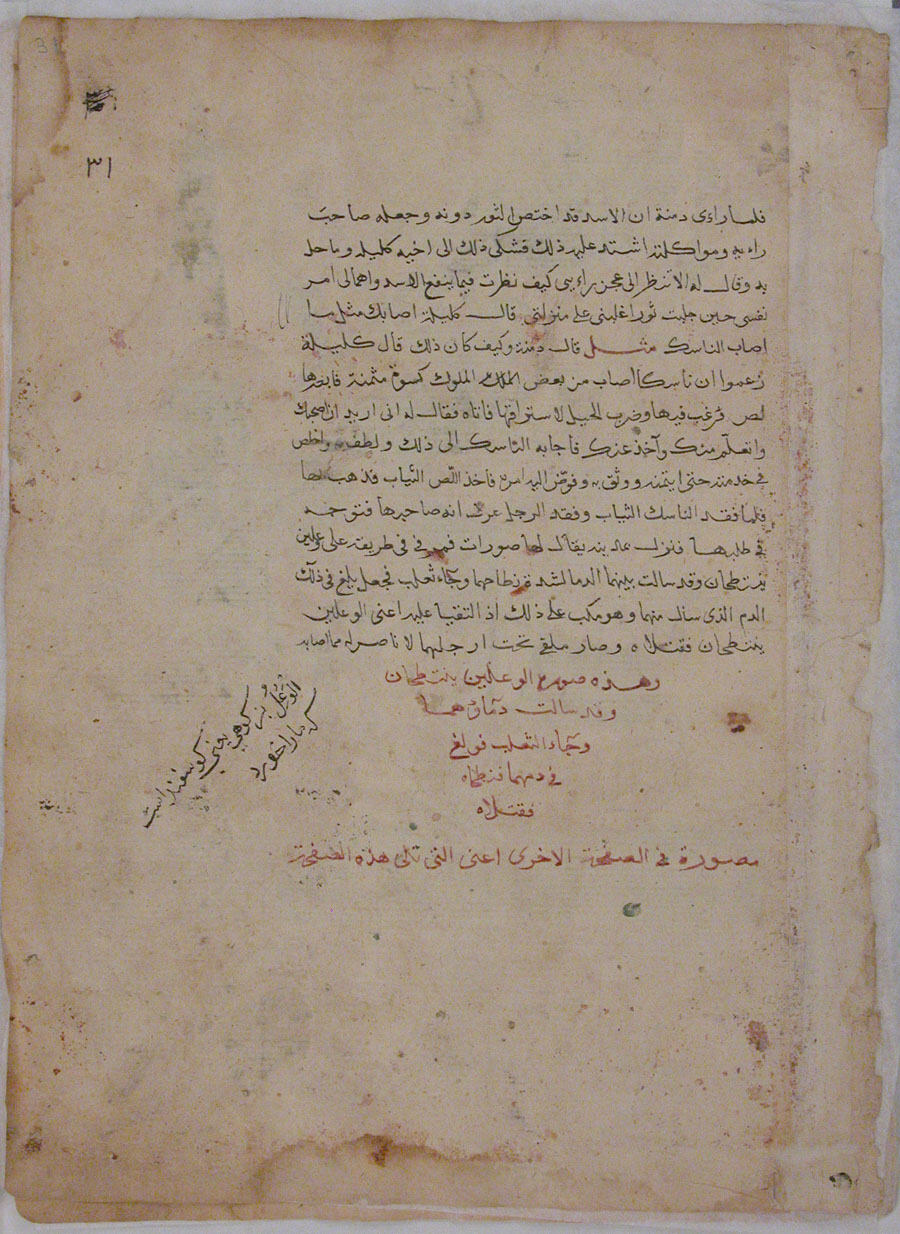 ٣١
فلما راءى دمنة ان الاسد قد اختص الثور دونه وجعله صاحب
راءيه ومواكلته اشتد عليه ذلك فشكى ذلك الى اخيه كليلة وما حل
به وقال له الا تنظر الى عجز راءيى كيف نظرت فيما ينفع الاسد واهمالى امر
نفسى حين جلبت ثورا غلبنى على منزلتى قال كليلة اصابك مثل ما
اصاب الناسك مثل قال دمنة وكيف كان ذلك قال كليلة
زعموا ان ناسكا اصاب من بعض الملوك كسوة مثمنة فابصرها
لص فرغب فيها وضرب الحيل لاستراقها فاتاه فقال له انى اريد ان اصحبك
واتعلم منك وآخذ عنك فاجابه الناسك الى ذلك ولطف به واخلص
فى خدمته حتى ايتمنه ووثق به وفوض اليه امره فاخذ اللص الثياب فذهب بها
فلما فقد الناسك الثياب وفقد الرجل عرف انه صاحبها فتوجه
فى طلبها فنزل بمدينة يقال لها صورات فمر فى طريقه على وعلين
ينتطحان وقد سالت بينهما الدما لشدة نطاحهما وجاء ثعلب فجعل يلغ فى ذلك
الدم الذى سال منهما وهو مكب على ذلك اذ التقيا عليه اعنى الوعلين
ينتطحان فقتلاه وصار ملقى تحت ارجلهما لا ناصر له مما اصابه
وهذه صورة الوعلين ينتطحان
وقد سالت دماؤهما
وجاء الثعلب فولغ
فى دمهما فنطحاه
فقتلاه
مصورة فى الصفحة الاخرى اعنى التى تلى هذه الصفحة
الوعل بز كوهى يعنى كوسفند است